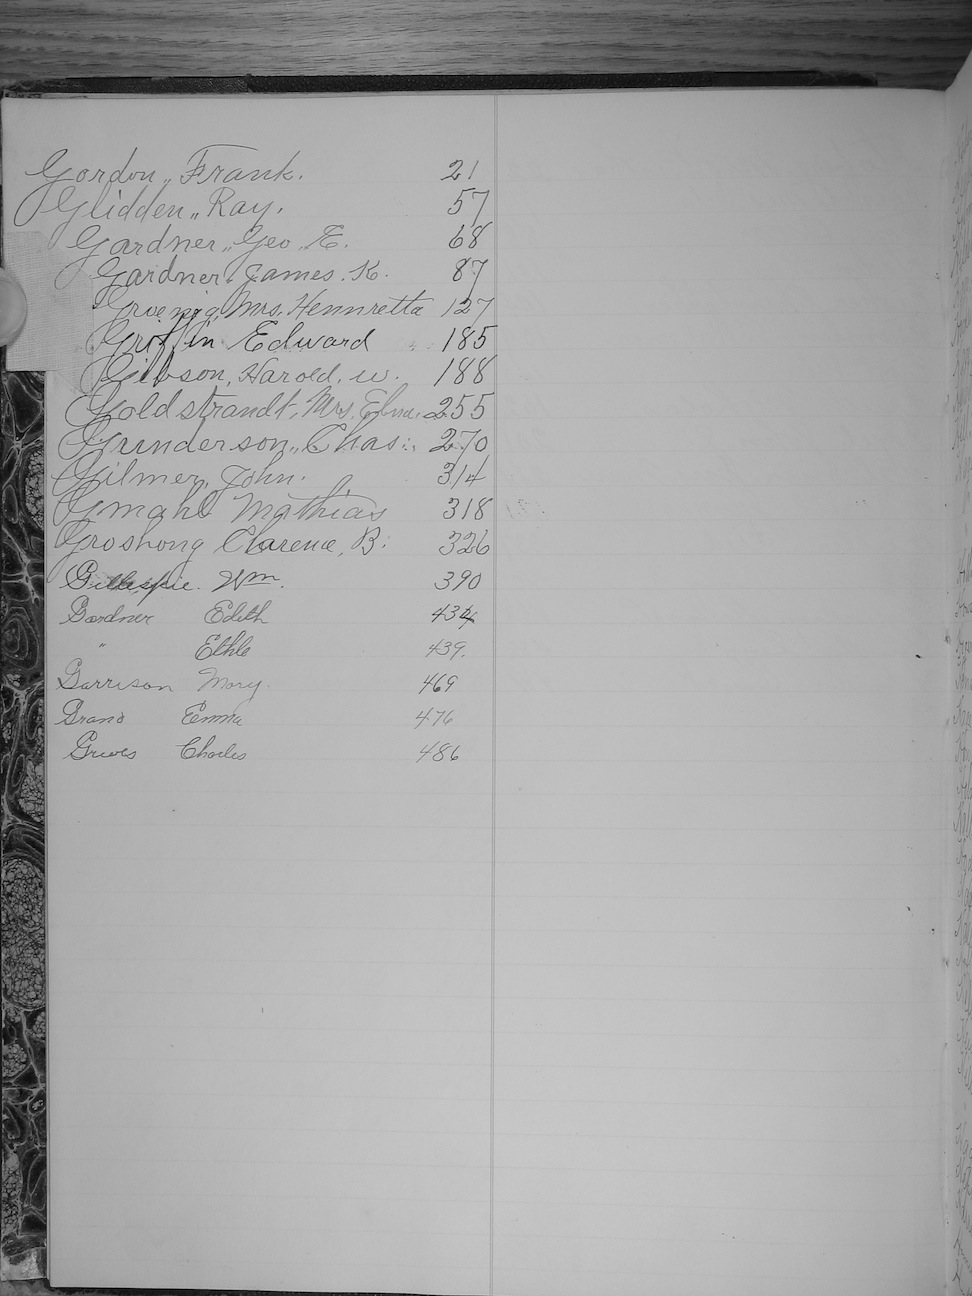 Gordon,, Frank. 21
Glidden,, Ray. 57
Gardner,, Geo. E. 68
Gardner, James. K. 87
Groenig, Mrs. Hennretta 127
Griffin Edward 185
Gibson, Harold. W. 188
Goldstrandt, Mrs. 255
Gunderson,, Chas. 270
Gilmer, John. 314
Gmahl Mathias 318
Groshong Clarence, B. 326
Gillespie. Wm. 390
Gardner Edith 434
" Ethle 439.
Garrison Mary. 469
Grand Emma 476
Charles 486